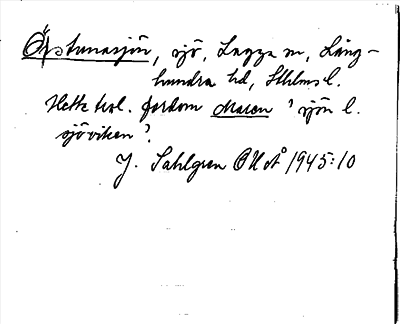 Örstunasjön, sjö, Lagga sn, Lång-
hundra hd, Sthlms l.
Hette trol. fordom Maren 'sjön l.
sjöviken'.
J. Sahlgren OUÅ 1945:10